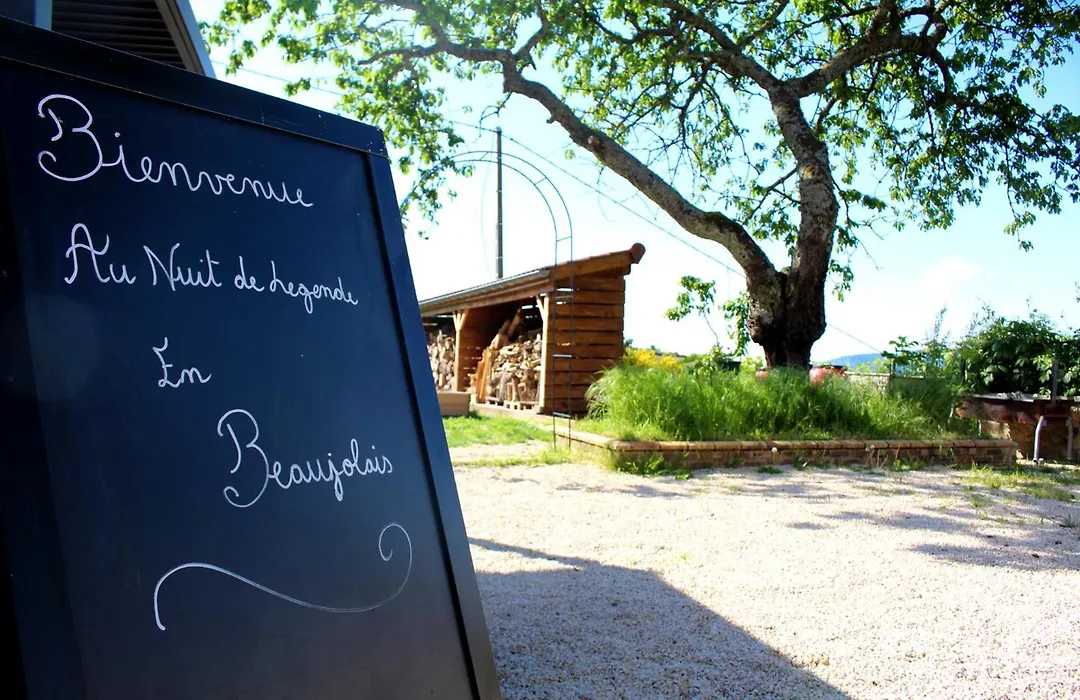 Bienvenue
Au Nuit de Legende
En
Beaujolais